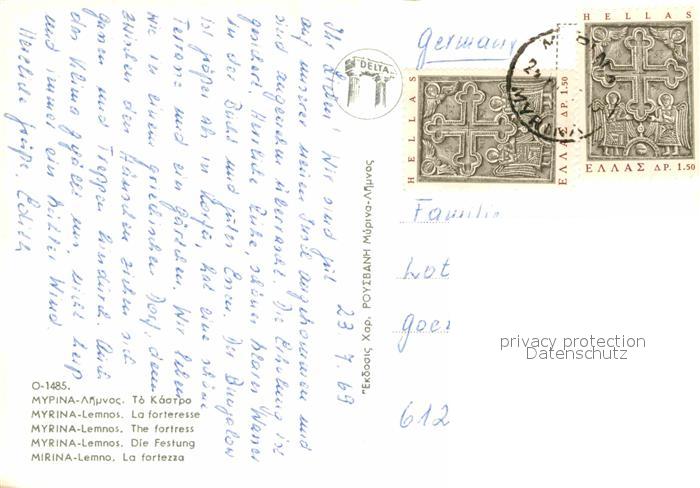 Ihr Lieben! Wir sind gut
auf unserer neuen Insel angekommen und
sind angenehm überrascht. Die Erholung ist
gesichert. Herrliche Ruhe, schönes klares Wasser
in der Bucht und gutes Essen. Der Bungalow
ist größer als in Korfu, hat eine schöne
Terrasse und ein Gärtchen. Wir leben
wie in einem griechischen Dorf, denn
zwischen den Häuschen ziehen sich
Gassen und Treppen hindurch. Auch
das Klima gefällt uns, nicht heiß
und immer ein leichter Wind.
Herzliche Grüße, Edith
23.7.69
DELTA
Ἔκδοσις Χαρ. ΡΟΥΣΒΑΝΗ Μύρινα-Λῆμνος
Germany
HELLAS
ΕΛΛΑΣ ΔΡ. 1.50
HELLAS
ΕΛΛΑΣ ΔΡ. 1.50
Familie
Lot
goer
612
privacy protection
Datenschutz
O-1485.
ΜΥΡΙΝΑ-Λῆμνος. Τὸ Κάστρο
MYRINA-Lemnos. La forteresse
MYRINA-Lemnos. The fortress
MYRINA-Lemnos. Die Festung
MIRINA-Lemno. La fortezza